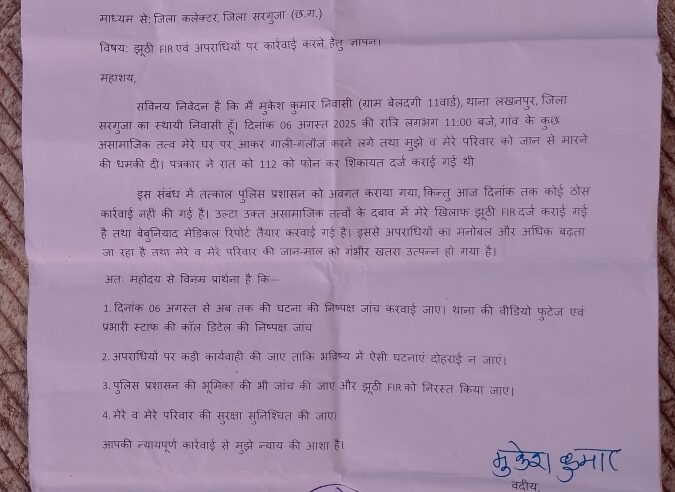 माध्यम से: जिला कलेक्टर, जिला सरगुजा (छ.ग.)
विषय: झूठी FIR एवं अपराधियों पर कार्रवाई करने हेतु ज्ञापन।
महाशय,
सविनय निवेदन है कि मैं मुकेश कुमार निवासी (ग्राम बेलदगी 11वार्ड), थाना लखनपुर, जिला
सरगुजा का स्थायी निवासी हूँ। दिनांक 06 अगस्त 2025 की रात्रि लगभग 11:00 बजे, गांव के कुछ
असामाजिक तत्व मेरे घर पर, आकर गाली-गलौज करने लगे तथा मुझे व मेरे परिवार को जान से मारने
की धमकी दी। पत्रकार ने रात को 112 को फोन कर शिकायत दर्ज कराई गई थी
इस संबंध में तत्काल पुलिस प्रशासन को अवगत कराया गया, किन्तु आज दिनांक तक कोई ठोस
कार्रवाई नहीं की गई है। उल्टा उक्त असामाजिक तत्वों के दबाव में मेरे खिलाफ झूठी FIR दर्ज कराई गई
है तथा बेबुनियाद मेडिकल रिपोर्ट तैयार करवाई गई है। इससे अपराधियों का मनोबल और अधिक बढ़ता
जा रहा है तथा मेरे व मेरे परिवार की जान-माल को गंभीर खतरा उत्पन्न हो गया है।
अतः महोदय से विनम्र प्रार्थना है कि—
1. दिनांक 06 अगस्त से अब तक की घटना की निष्पक्ष जांच करवाई जाए। थाना की वीडियो फुटेज एवं
प्रभारी स्टाफ की कॉल डिटेल की निष्पक्ष जांच
2. अपराधियों पर कड़ी कार्यवाही की जाए ताकि भविष्य में ऐसी घटनाएं दोहराई न जाएं।
3. पुलिस प्रशासन की भूमिका की भी जांच की जाए और झूठी FIR को निरस्त किया जाए।
4. मेरे व मेरे परिवार की सुरक्षा सुनिश्चित की जाए।
आपकी न्यायपूर्ण कार्रवाई से मुझे न्याय की आशा है।
मुकेश कुमार
वदीय,